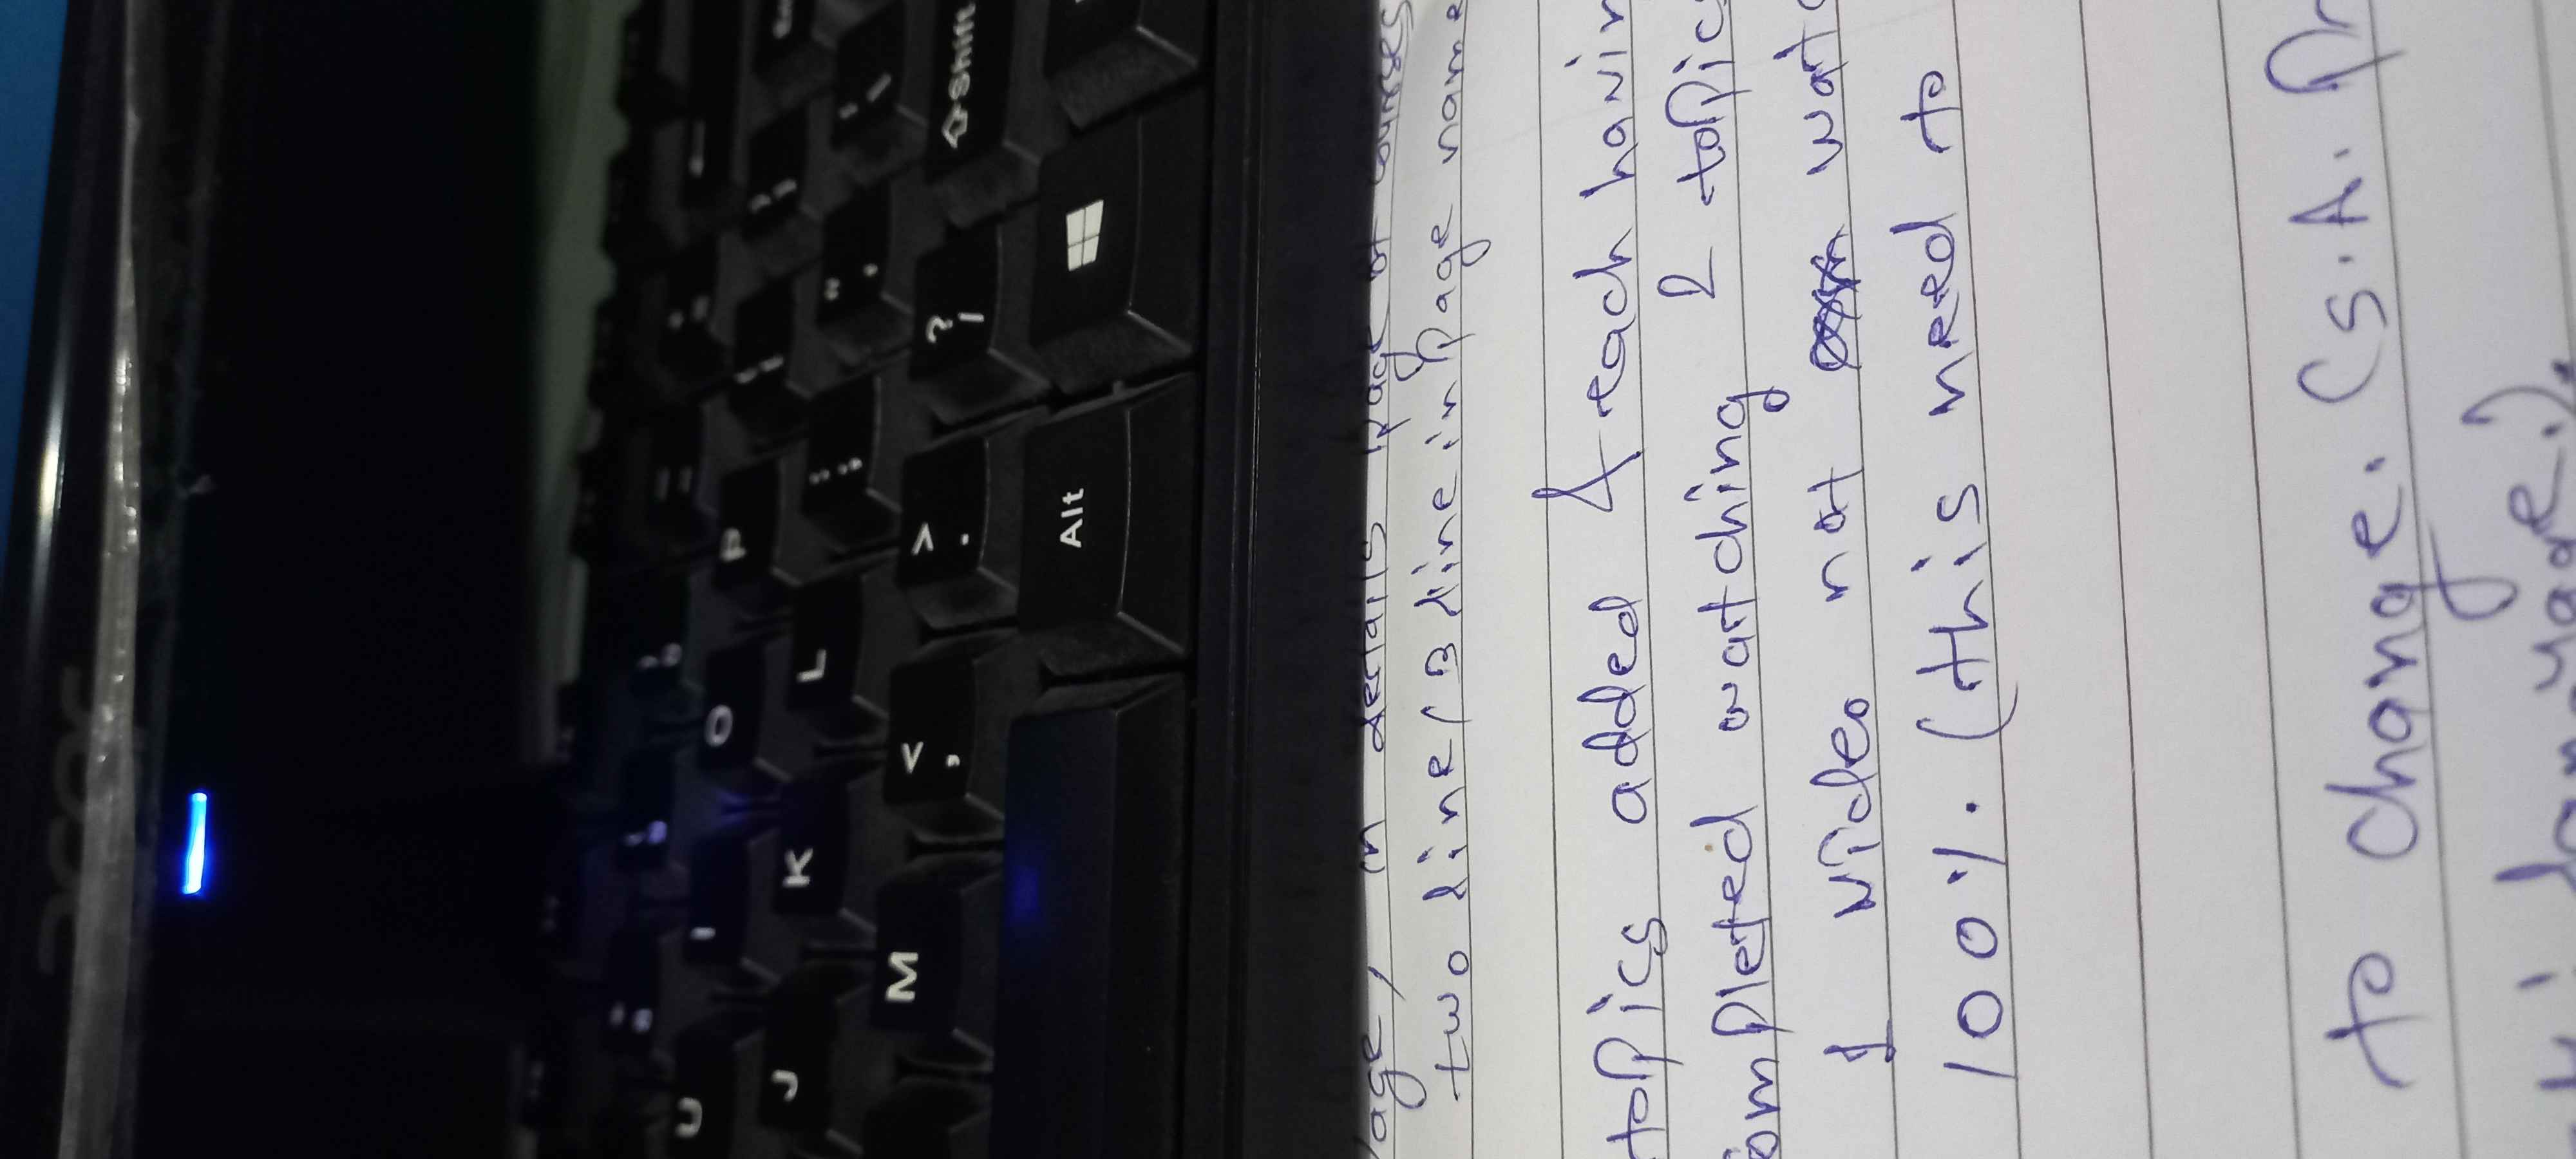 acer
U I O P
J K L : ; " '
M < , > . ? / Shift
Alt
age, in details page of courses
two line / 3 line in Page name
topics added & each havin
ompleted watching 2 topics
1 video not watc
100%. (this need to
to change. (S.A. Pr
language.).